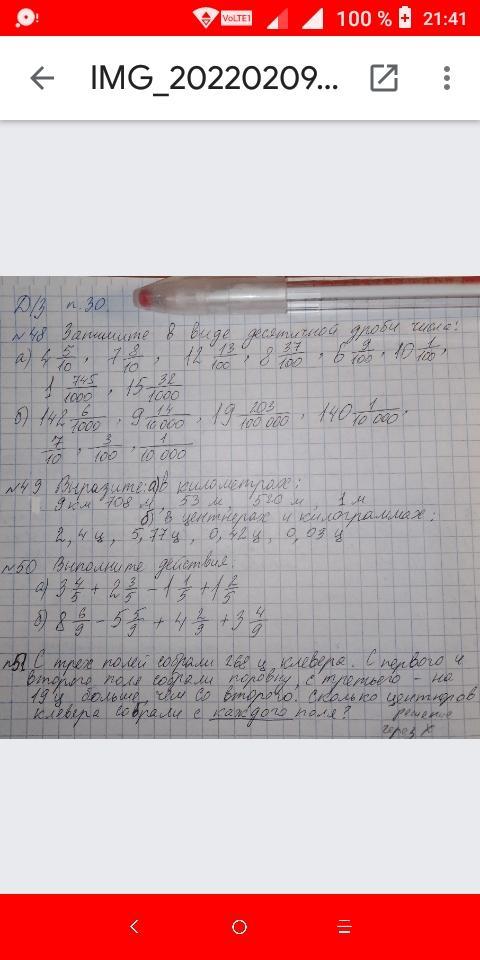 VoLTE1 100 % 21:41
IMG_20220209...
Д/З п.30
№48 Запишите в виде десятичной дроби числа:
а) 4 7/10, 7 8/10, 12 13/100, 8 37/100, 6 9/100, 10 1/100,
1 745/1000, 15 32/1000
б) 142 6/1000, 9 14/10000, 19 203/100 000, 140 1/10 000,
7/10, 3/100, 1/10 000
№49 Выразите: а) в километрах:
9 км 708 м, 53 м 520 м, 1 м
б) в центнерах и килограммах:
2,4 ц, 5,77 ц, 0,42 ц, 0,03 ц
№50 Выполните действия:
а) 3 4/5 + 2 3/5 - 1 1/5 + 1 2/5
б) 8 6/9 - 5 5/9 + 4 2/9 + 3 4/9
№51 С трех полей собрали 268 ц клевера. С первого и
второго поля собрали поровну, с третьего - на
19 ц больше, чем со второго. Сколько центнеров
клевера собрали с каждого поля? решение
через х